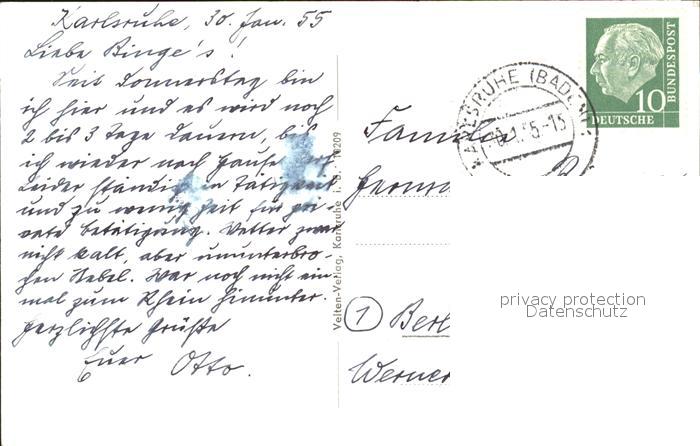 Karlsruhe, 30. Jan. 55
Liebe Binge's!
Seit Donnerstag bin
ich hier und es wird noch
2 bis 3 Tage dauern, bis
ich wieder nach Hause darf.
Leider ständig in Tätigkeit
und zu wenig Zeit für pri-
vate Betätigung. Wetter zwar
nicht kalt, aber ununterbro-
chen Nebel. War noch nicht ein-
mal zum Rhein hinunter.
Herzlichste Grüße
Euer Otto.
Velten-Verlag, Karlsruhe i. B. 10209
KARLSRUHE (BADEN)
-15
10
DEUTSCHE
BUNDESPOST
Familie
Herm
1 Berl
Werner
privacy protection
Datenschutz